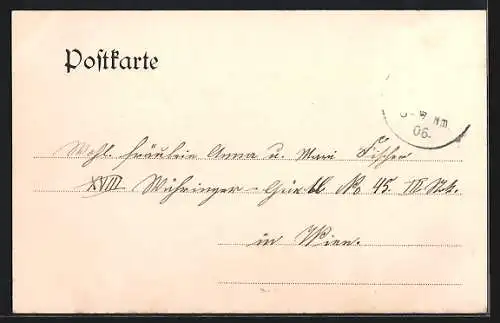 Postkarte
5-6 Nm.
06.
Wohl. Fräulein Anna u. Mari Fischer
XVIII Währinger-Gürtl No 45. III Stk.
in Wien.